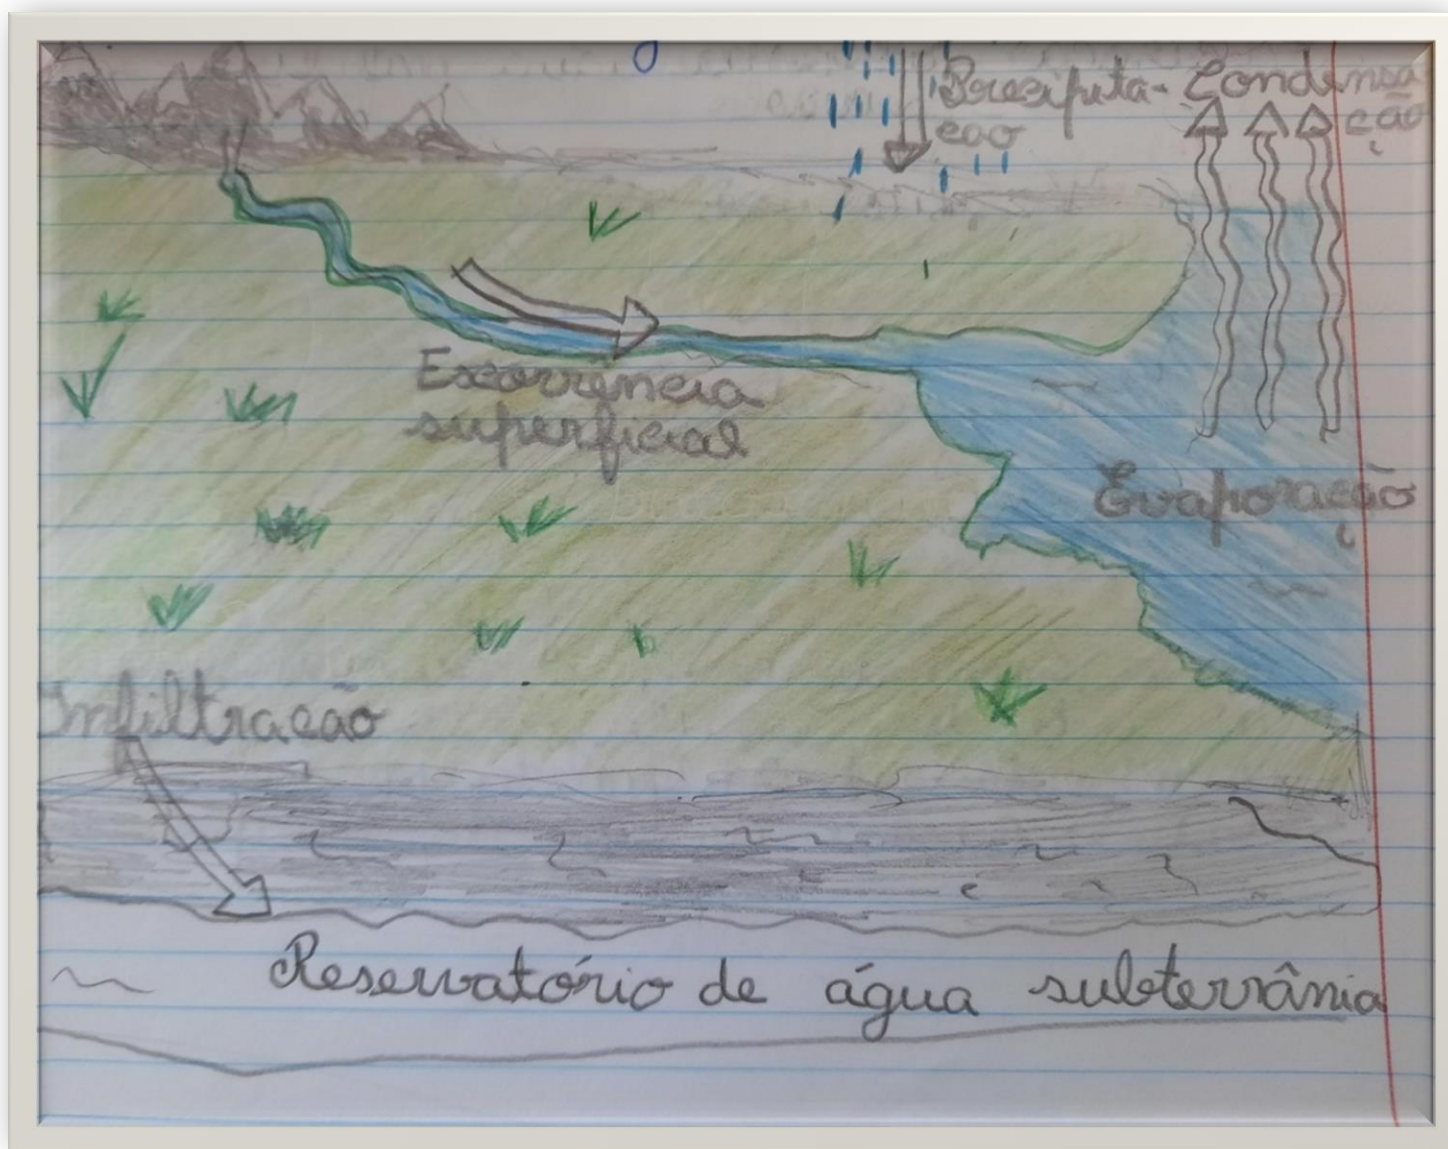 Precipita-
ção
Condensa
ção
Escorrência
superficial
Evaporação
Infiltração
Reservatório de água subterrânia